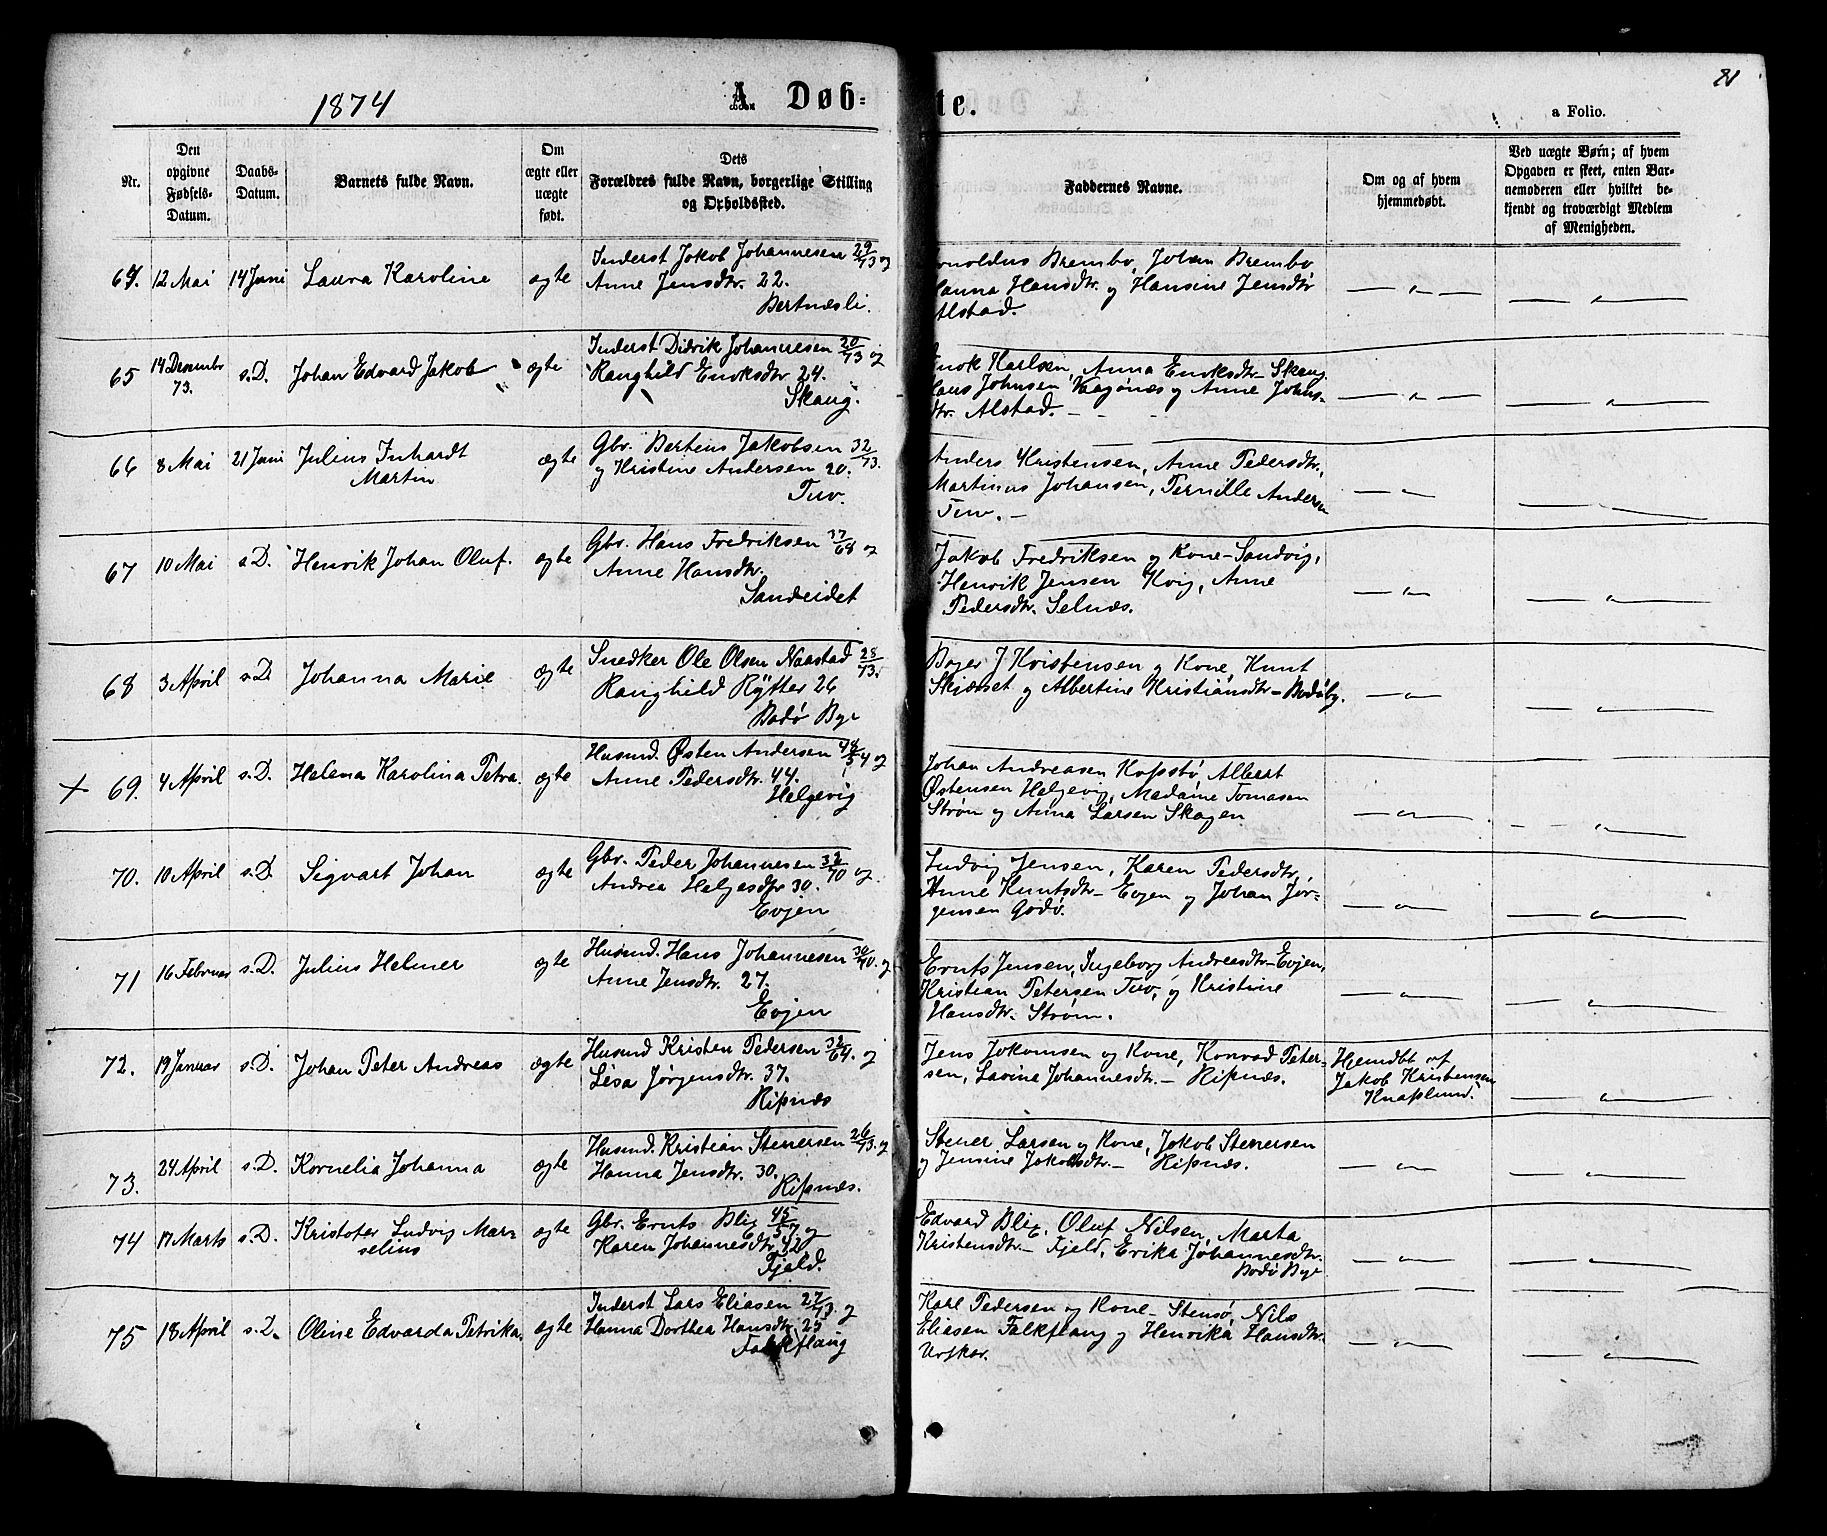 81
1874
A. Døb-
te.
a Folio.
Nr.
Den opgivne Fødsels-Datum.
Daabs-Datum.
Barnets fulde Navn.
Om ægte eller uægte født.
Dets Forældres fulde Navn, borgerlige Stilling og Opholdssted.
Faddernes Navne.
Om og af hvem hjemmedøbt.
Ved uægte Børn; af hvem Opgaven er skeet, enten Barnemoderen eller hvilket bekjendt og troværdigt Medlem af Menigheden.
64. 12 Mai 14 Juni Laura Karoline ægte
Inderst Jakob Johannesen 29/73 og
Anne Jensdtr. 22.
Bertnæsli.
Arnoldus Brembo, Johan Brembo
Hanna Hansdtr. og Hansine Jensdtr
Alstad.
65 14 Desembr 73. s.D. Johan Edvard Jakob ægte
Inderst Didrik Johannesen 20/73 og
Ranghild Enoksdtr 24.
Skaug.
Enok Karlsen, Anna Enoksdtr- Skaug.
Hans Johnsen Vaagønæs og Anne Johns-
dtr. Alstad. -
66 8 Mai 21 Juni Julius Inhardt
Martin
ægte
Gbr. Bertens Jakobsen 32/73.
og Kristine Andersen 20.
Tuv.
Anders Kristensen, Anne Pedersdtr.,
Martinus Johansen, Pernille Andersen
Tuv. -
67 10 Mai s.D. Henrik Johan Oluf. ægte
Gbr. Hans Fredriksen 37/68 og
Anne Hansdtr.
Sandeidet
Jakob Fredriksen og Kone-Sandvig,
Henrik Jensen Kvig, Anne
Pedersdtr. Selnæs.
68 3 April s.D Johanna Marie ægte
Snedker Ole Olsen Naastad 28/73.
Ranghild Rytter 26
Bodø Bye
J Kristensen og Kone, Knut
Skjæset og Albertine Kristiansdtr- Bodøby.
+ 69. 4 April s.D. Helena Karolina Petra. ægte
Husmd. Østen Andersen 48/54 og
Anne Pedersdtr. 44.
Helgevig
Johan Andreasen Kopstø, Albert
Østensen Helgevig, Madame Tomasen
Strøm og Anna Larsen Skagen
70. 10 April s.D. Sigvart Johan ægte
Gbr. Peder Johannesen 32/70 og.
Andrea Helgesdtr 30.
Evjen
Ludvig Jensen, Karen Pedersdtr,
Anne Knutsdtr- Evjen og Johan Jør-
gensen Godø.
71 16 Februar s.D. Julius Helmer ægte
Husmd. Hans Johannesen 30/70. og
Anne Jensdtr. 27.
Evjen
Ernts Jensen, Ingeborg Andreasdtr-Evjen,
Kristian Petersen Tuv, og Kristine
Hansdtr- Strøm.
72. 19 Januar s.D. Johan Peter Andreas ægte
Husmd Kristen Pedersen 32/64. og
Lisa Jørgensdtr. 37.
Ripnæs
Jens Jokumsen og Kone, Konrad Peter-
sen, Lavina Johannesdtr. - Ripnæs.
Hjemdbt af
Jakob Kristensen
Knaplund.
73. 24 April s.D. Kornelia Johanna ægte
Husmd. Kristian Stenersen 26/73. og
Hanna Jensdtr. 30.
Ripnæs.
Stener Larsen og Kone, Jakob Stenersen
og Jensine Jakobsdtr.- Ripnæs.
74 17 Marts s.D. Kristofer Ludvig Mar-
selius
ægte
Gbr. Ernts Blix 45/57 og
Karen Johannesdtr. 42
Fjeld.
Edvard Blix, Oluf Nilsen, Marta
Kristensdtr- Fjeld, Erika Johannesdtr.
Bodø Bye
75 18 April s.D. Oline Edvarda Petrika. ægte
Inderst Lars Eliasen 27/73. og
Hanna Dorthea Hansdtr. 25
Falkflaug
Karl Pedersen og Kone- Stensø, Nils
Eliasen Falkflaug og Henrika Hansdtr.
Urskar.